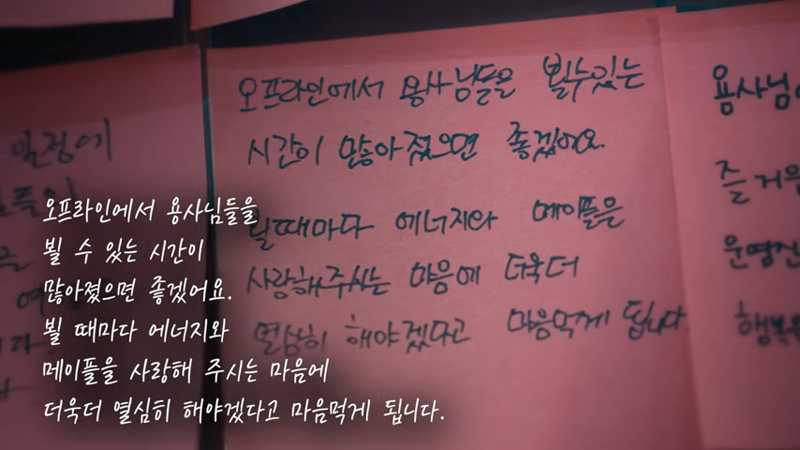 오프라인에서 용사님들을 뵐수있는
시간이 많아졌으면 좋겠어요.
뵐때마다 에너지와 메이플을
사랑해주시는 마음에 더욱더
열심히 해야겠다고 마음먹게 됩니다.
일정에
용사님
즐거음
운영진
행복
오프라인에서 용사님들을
뵐 수 있는 시간이
많아졌으면 좋겠어요.
뵐 때마다 에너지와
메이플을 사랑해 주시는 마음에
더욱더 열심히 해야겠다고 마음먹게 됩니다.